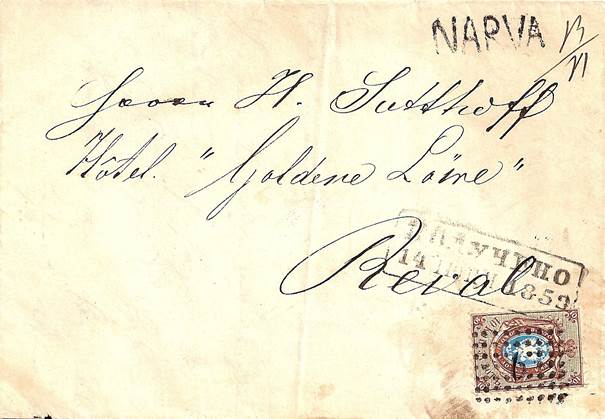 NARVA
13/VI
Herrn H. Sutthoff
Hôtel. "Goldene Löwe"
Reval
ПОЛУЧЕНО
14 1859
10